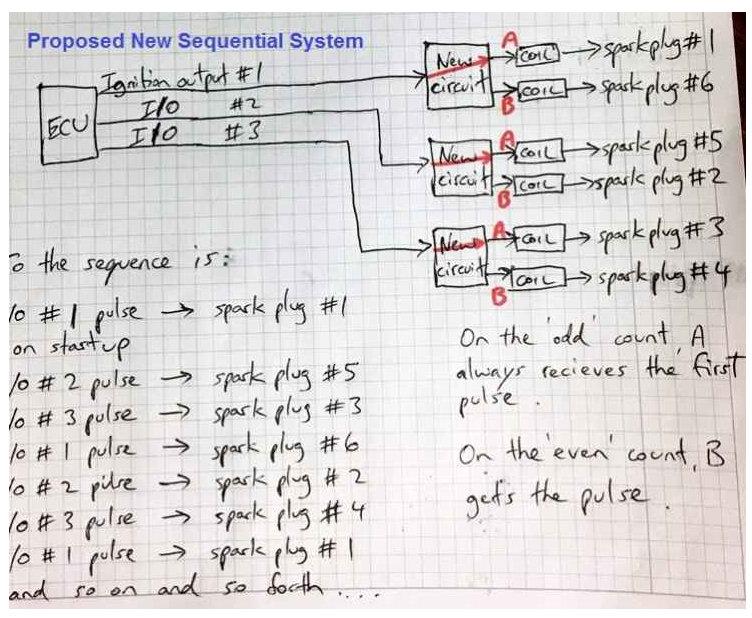 Proposed New Sequential System
Ignition output #1
I/O #2
I/O #3
ECU
New circuit
A
COIL
spark plug #1
B
COIL
spark plug #6
New circuit
A
COIL
spark plug #5
B
COIL
spark plug #2
New circuit
A
COIL
spark plug #3
B
COIL
spark plug #4
o the sequence is:
/o #1 pulse → spark plug #1
on startup
/o #2 pulse → spark plug #5
/o #3 pulse → spark plug #3
/o #1 pulse → spark plug #6
/o #2 pulse → spark plug #2
/o #3 pulse → spark plug #4
/o #1 pulse → spark plug #1
and so on and so forth ....
On the 'odd' count, A
always recieves the first
pulse.
On the 'even' count, B
gets the pulse.